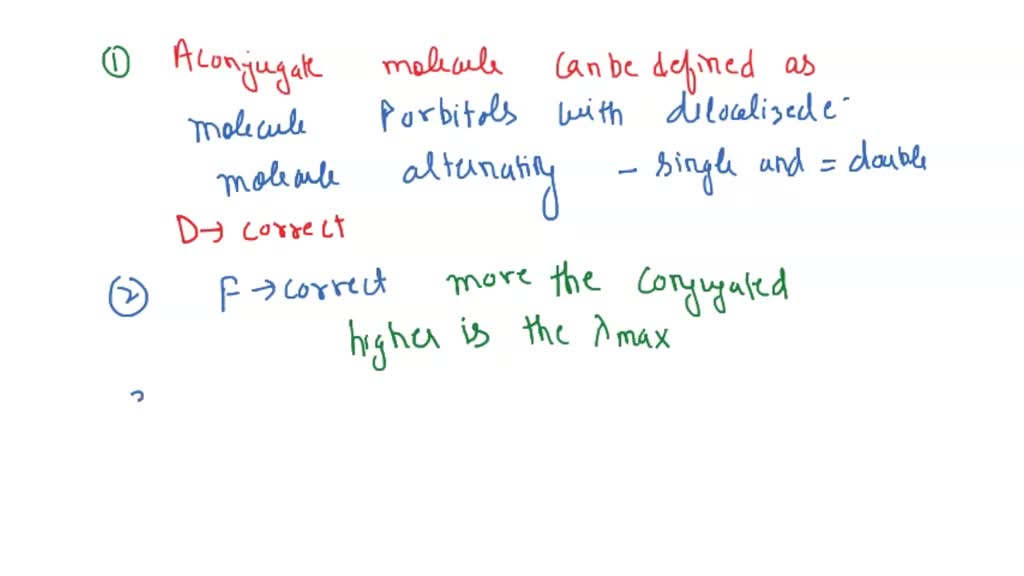 ① A conjugate molecule can be defined as
molecule Porbitols with dilocalized e⁻
molecule alternating - single and = double
D → correct
② F → correct more the conjugated
higher is the λmax